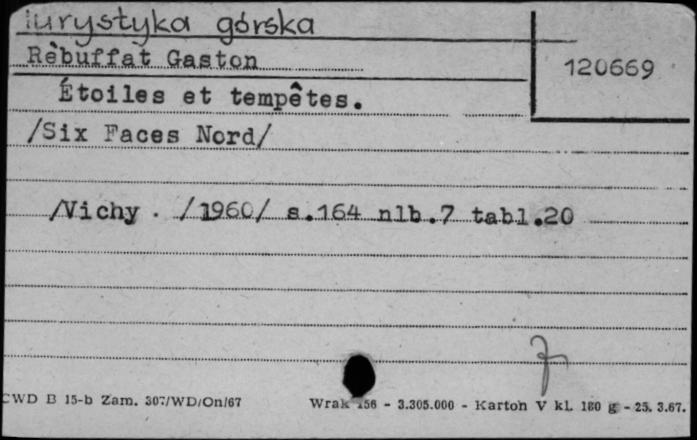 Turystyka górska
Rèbuffat Gaston
120669
Étoiles et tempêtes.
/Six Faces Nord/
/Vichy . /1960/ s.164 nlb.7 tabl.20
CWD B 15-b Zam. 307/WD/On/67
Wrak 156 - 3.305.000 - Karton V kl. 180 g - 25. 3.67.